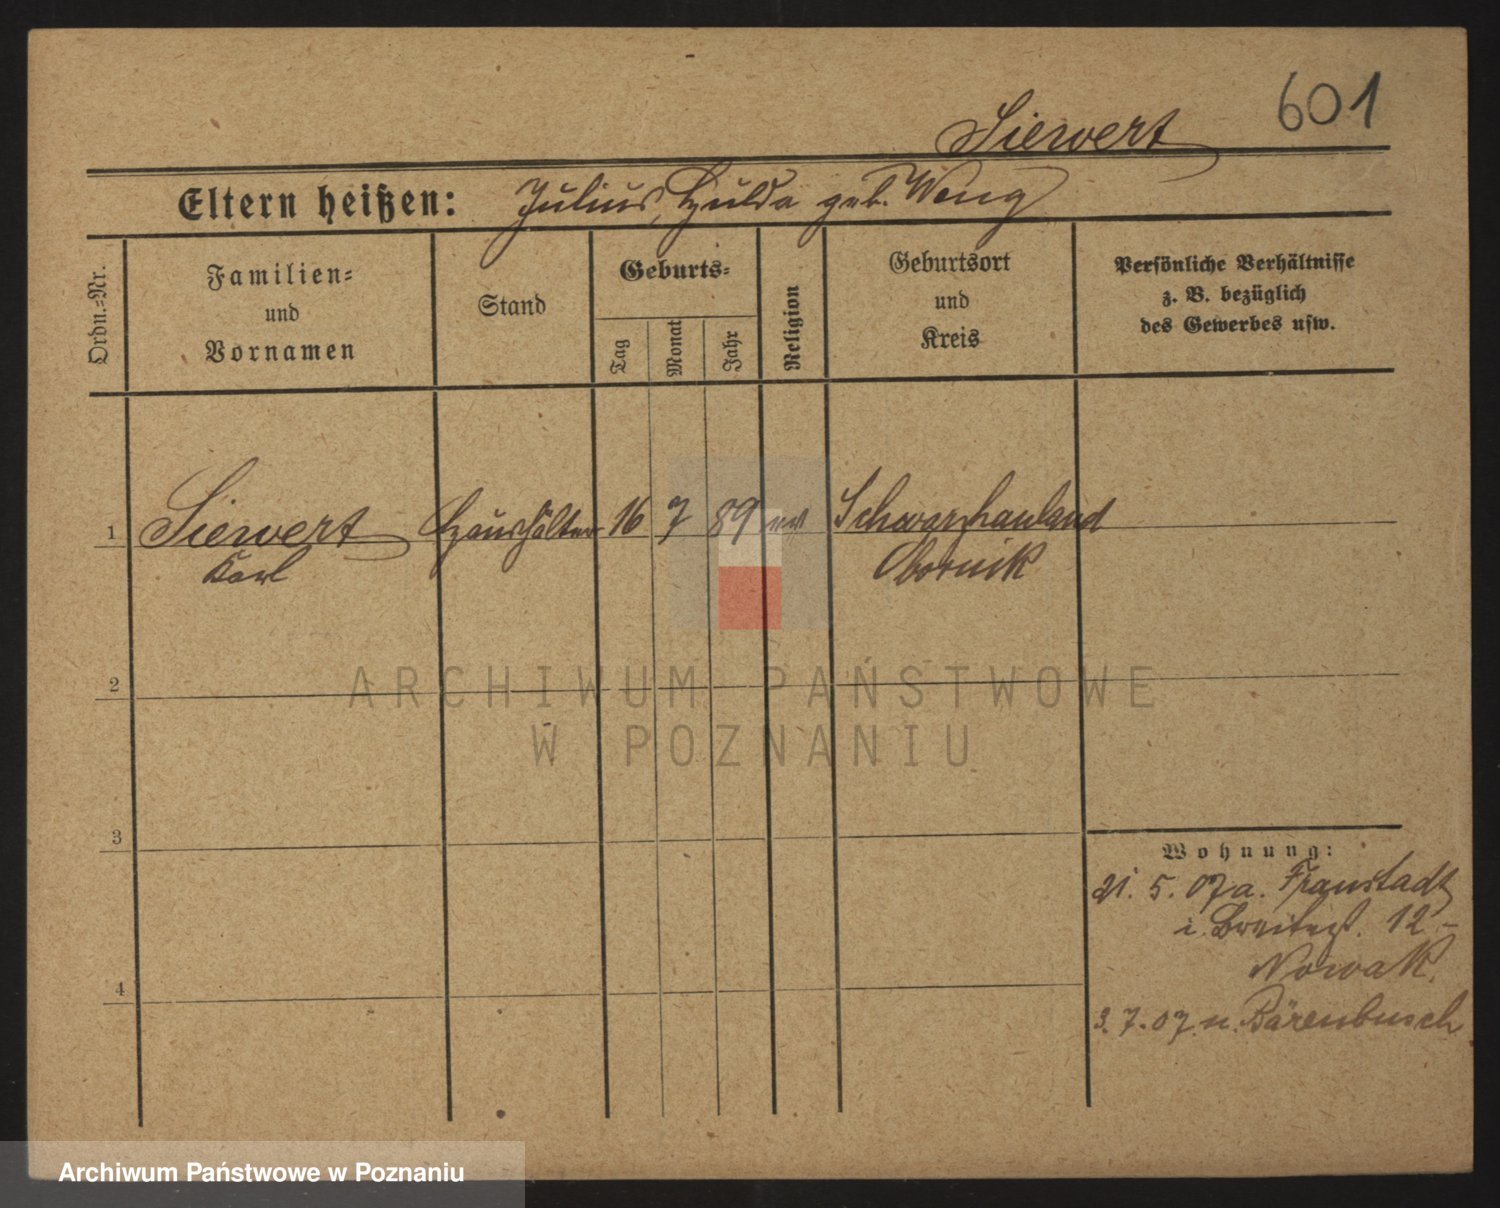 601
Siewert
Eltern heißen: Julius, Hulda geb. Weng
Ordn.-Nr.
Familien-
und
Vornamen
Stand
Geburts-
Tag
Monat
Jahr
Religion
Geburtsort
und
Kreis
Persönliche Verhältnisse
z. B. bezüglich
des Gewerbes usw.
1 Siewert Haushälter 16 7 89 ev Schwarzhauland
Karl Obornik
2
3
4
Wohnung:
21. 5. 07 a. Fraustadt
i. Breitest. 12 -
Nowak.
3. 7. 07 n. Bärenbusch
ARCHIWUM PAŃSTWOWE
W POZNANIU
Archiwum Państwowe w Poznaniu